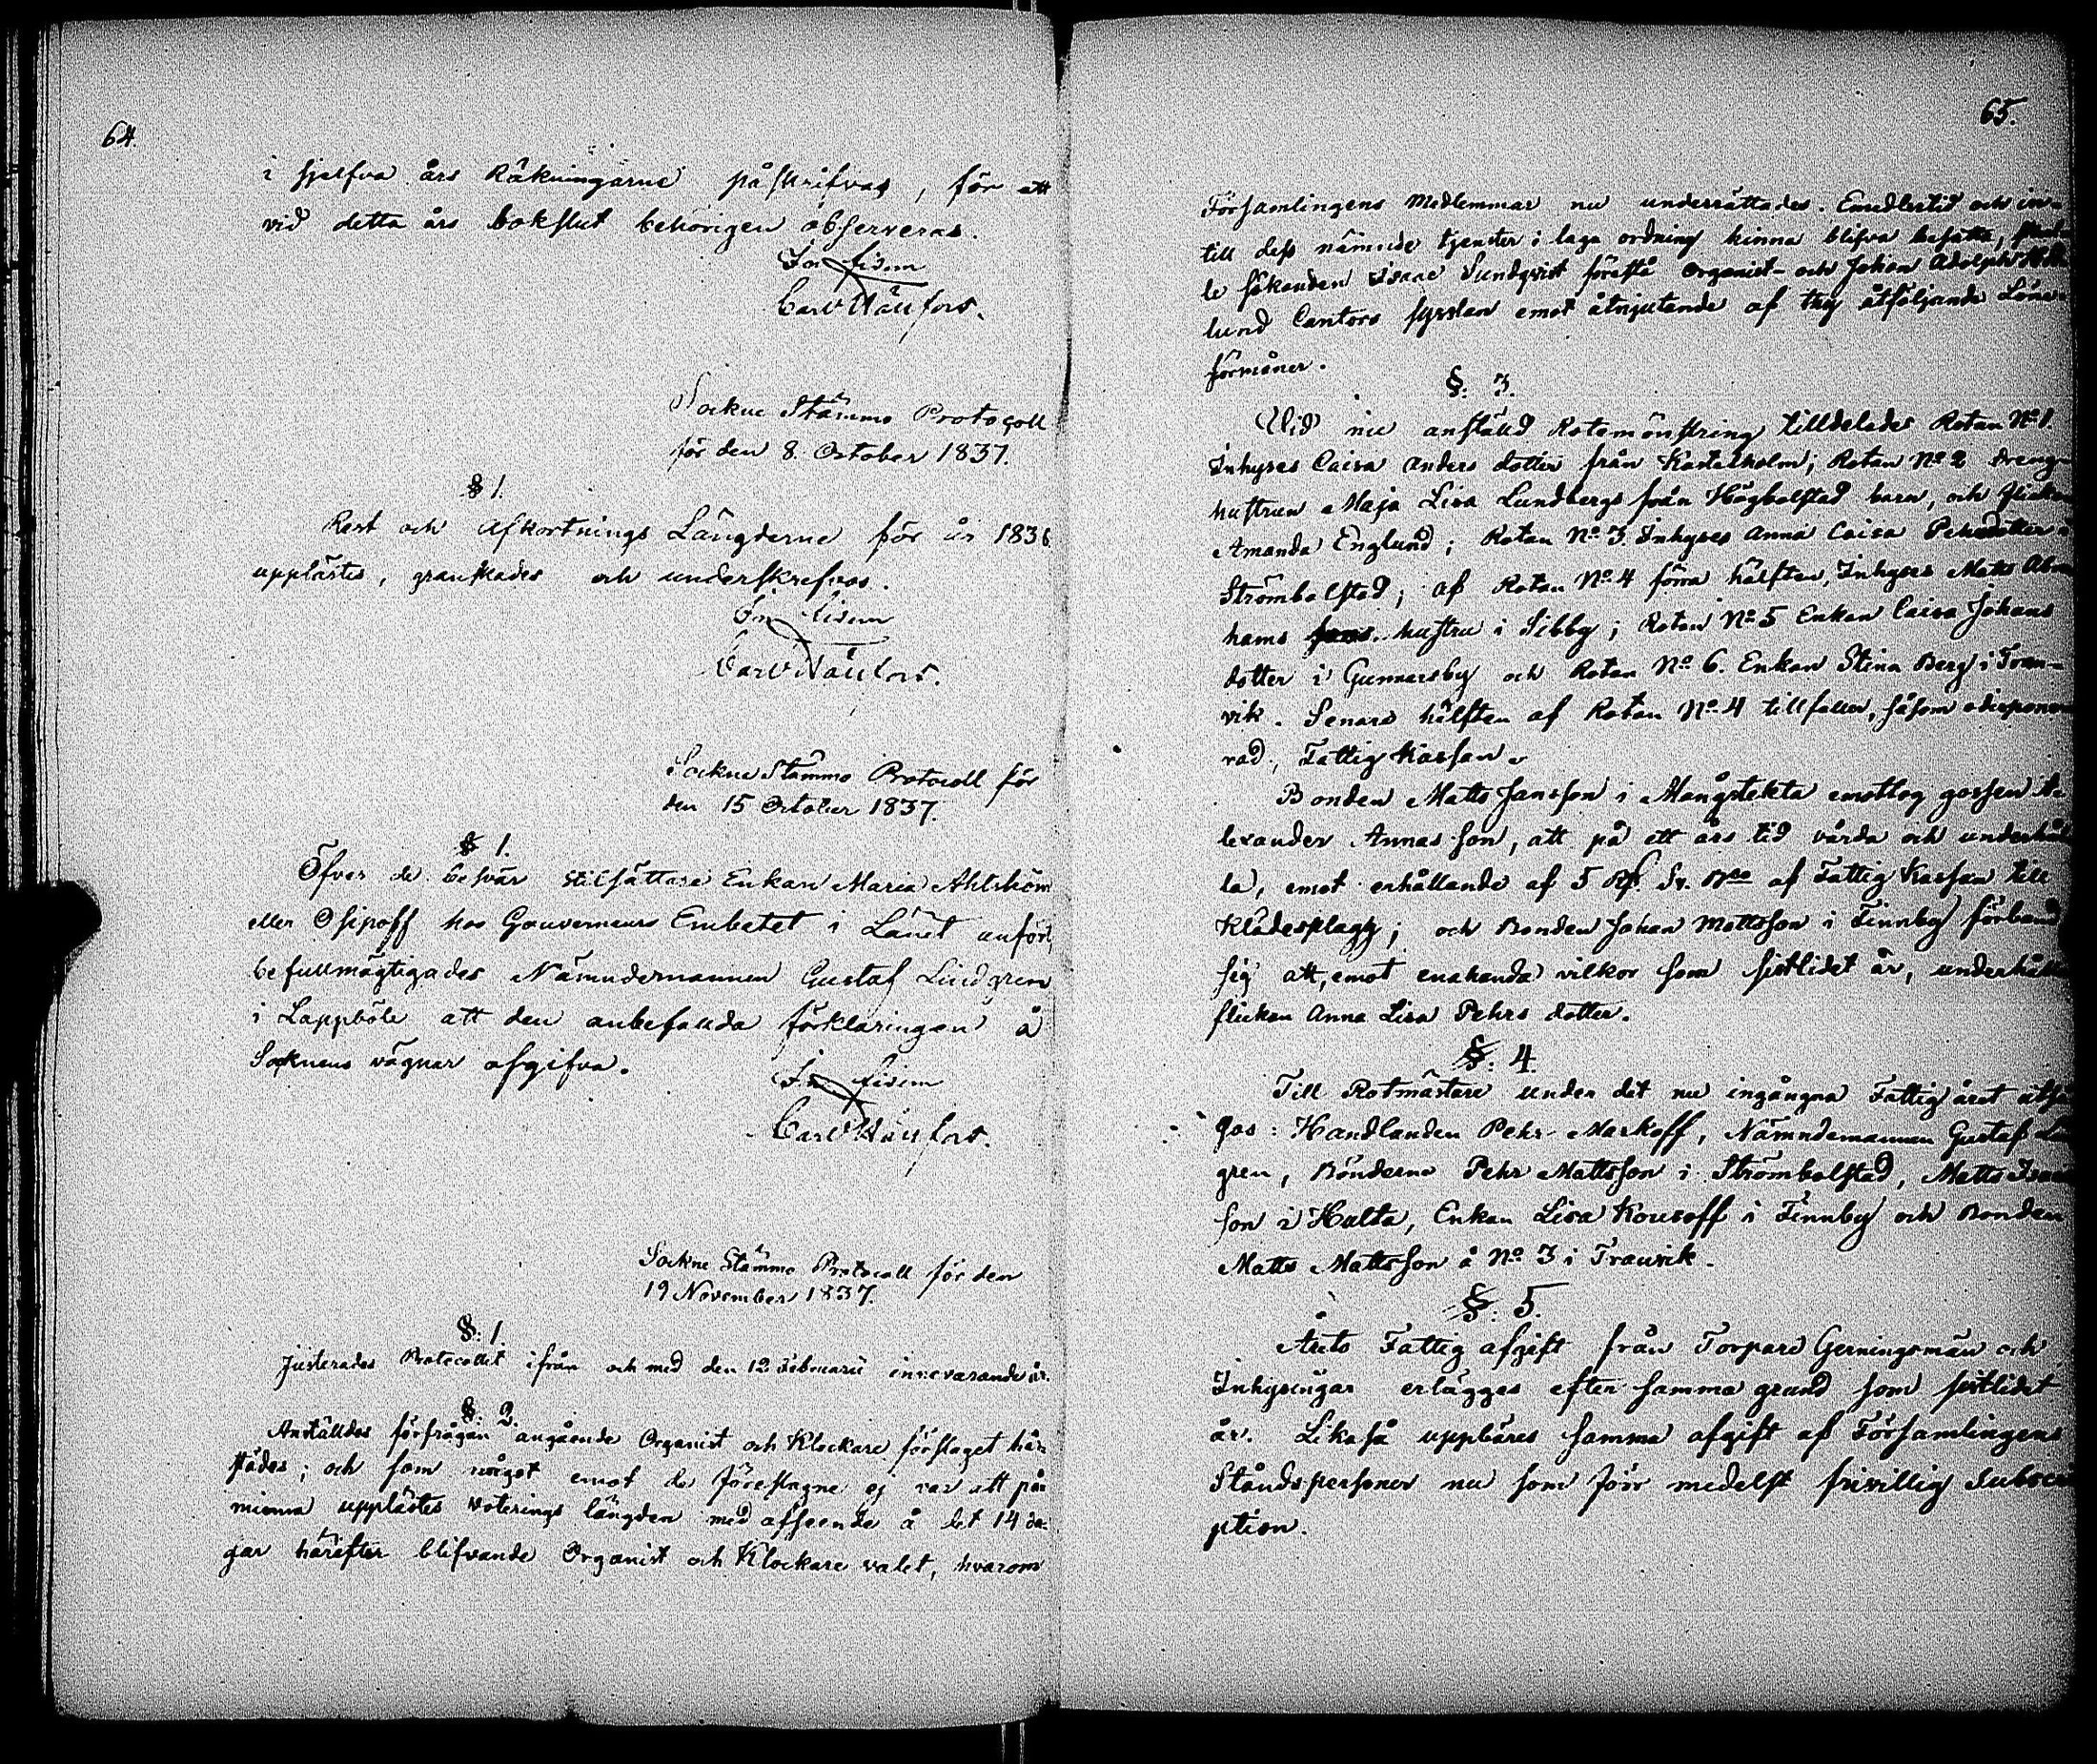 64.
i sjelfva års Räkningarne påskrifvas, för att
vid detta års bokslut behörigen observeras.
In fidem
Carl
Sockne Stämmo Protocoll
för den 8. October 1837.
§ 1.
Rest och Afkortnings Längderne för år 1836
upplästes, granskades och underskrefvos.
In fidem
Carl
Sockne Stämmo Protocoll för
den 15 October 1837.
§ 1.
Öfver de besvär Enkan Maria Ahlström
eller Osipoff hos Gouverneurs Embetet i Länet anfört,
befullmägtigades Nämndemannen Gustaf Lindgren
i Lappböle att den anbefallda förklaringen å
Socknens vägnar afgifva.
In fidem
Carl
Sockne Stämmo Protocoll för den
19 November 1837.
§. 1.
Justerades Protocollet ifrån och med den 12 Februarii innevarande år.
§. 2.
Anställdes förfrågan angående Organist och Klockare förslaget här-
städes; och som något emot de föreslagne ej var att på-
minna upplästes Voterings längden med afseende å det 14 da-
gar härefter blifvande Organist och Klockare valet, hvarom
65.
Församlingens Medlemmar nu underrättades. Emedlertid och in-
till dess nämnde tjenster i laga ordning kinna blifva besatte,
le sökanden Isaac Sundqvist förestå Organist- och Johan Adolph
lund Cantors sysslan emot åtnjutande af thy åtföljande Löne-
förmåner.
§. 3.
Vid nu anstäld Rotemönstring tilldelades Rotan No 1.
Inhyses Caisa Anders dotter från Kastelholm; Rotan No 2
hustrun Maja Lisa Lundbergs från Högbolstad barn, och flickan
Amanda Englund; Rotan No 3. Inhyses Anna Caisa Pehrsdotter i
Strömbolstad; af Rotan No 4 förra hälften, Inhyses Matts Abra
hams hustru i Sibby; Rotan No 5 Enkan Caisa Johans
dotter i Gunnarsby och Rotan No 6. Enkan Stina Berg i Tran-
vik. Senare hälften af Rotan No 4 tillfaller, såsom odispone
rad, Fattig Kassan.
Bonden Matts Jansson i Mångstekta emottog gossen A-
lexander Annas son, att på ett års tid vårda och underhål
la, emot erhållande af 5 Rf. Sr. Bco af Fattig Kassan till
Klädesplagg; och Bonden Johan Mattsson i Finnby förband
sig att, emot enahanda vilkor som sistlidet år, underhålla
flickan Anna Lisa Pehrs dotter.
§. 4.
Till Rotmästare under det nu ingångna Fattig året utså
gos: Handlanden Pehr Markoff, Nämndemannen Gustaf Lin
gren, Bönderne Pehr Mattsson i Strömbolstad, Matts
son i Hulta, Enkan Lisa Kousoff i Finnby och Bonden
Matts Mattsson å No 3 i Tranvik.
§. 5.
Årets Fattig afgift från Torpare Gerningsmän och
Inhysingar erlägges efter samma grund som sistlidet
år. Likaså uppbäres samma afgift af Församlingens
Ståndspersoner nu som förr medelst frivillig Subscri
ption.